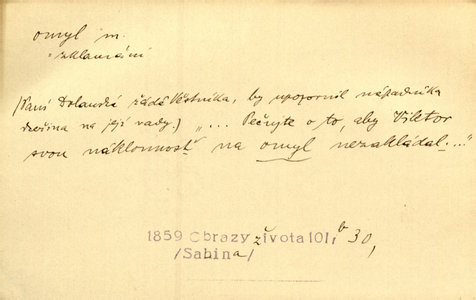 omyl m.
zklamání
(Paní Dolanská žádá Věštníka, by upozornil nápadníka
dceřina na její vady.) „... Pečujte o to, aby Viktor
svou náklonnost na omyl nezakládal..."
1859 Obrazy života 101, b 30,
/Sabina/